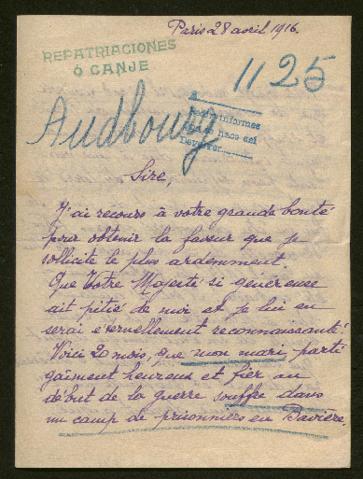 Paris 28 avril 1916.
REPATRIACIONES
ó CANJE
1125
Audbourg
Sire,
J'ai recours à votre grande bonté
pour obtenir la faveur que je
sollicite le plus ardemment.
Que Votre Majesté si généreuse
ait pitié de moi et je lui en
serai éternellement reconnaissante
Voici 20 mois, que mon mari, parti
gaiment heureux et fier au
début de la guerre souffre dans
un camp de prisonniers en Bavière.